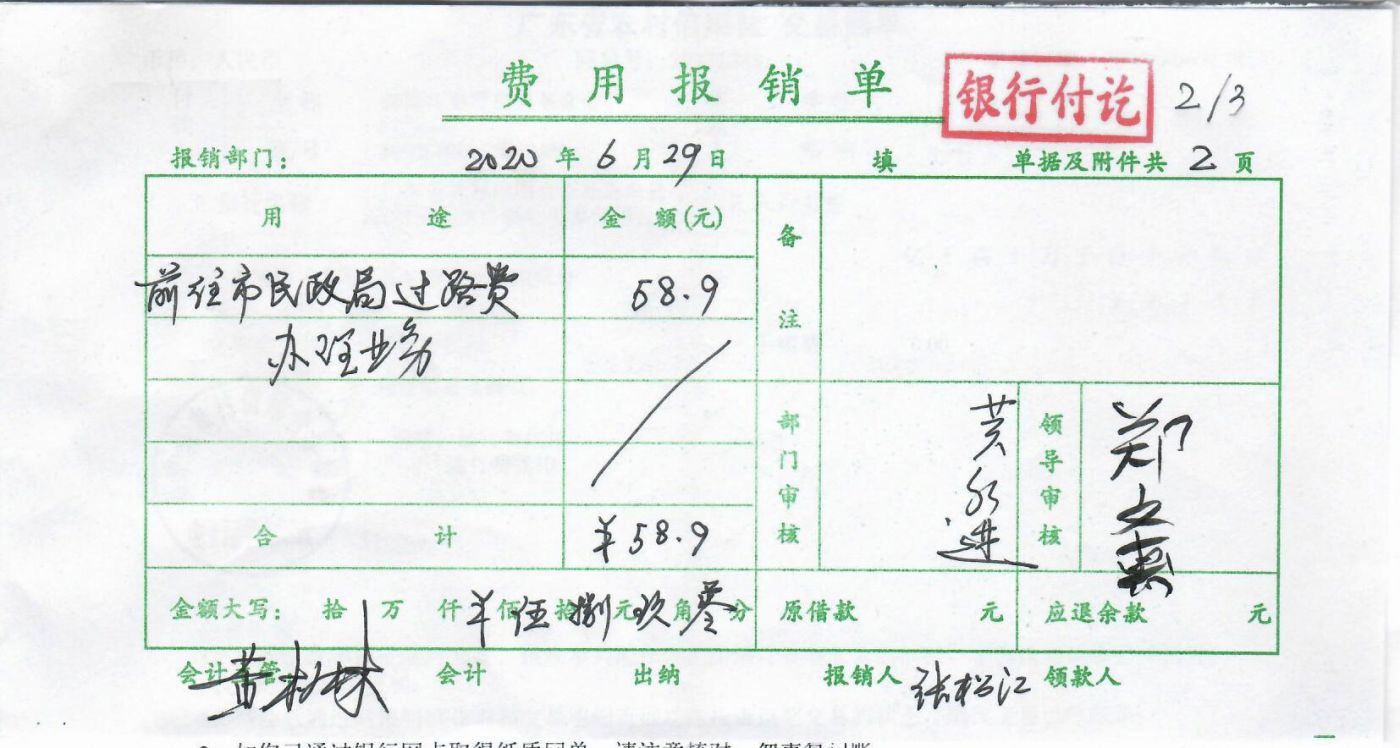 费用报销单 银行付讫 2/3
报销部门： 2020年6月29日 填 单据及附件共 2 页
用途 金额(元) 备注
前往市民政局过路费 58.9
办理业务
部门审核 领导审核 郑
合计 ¥58.9
金额大写： 拾 万 仟 ¥ 佰 伍 拾 捌 元 玖 角 零 分 原借款 元 应退余款 元
会计主管 会计 出纳 报销人 张松江 领款人